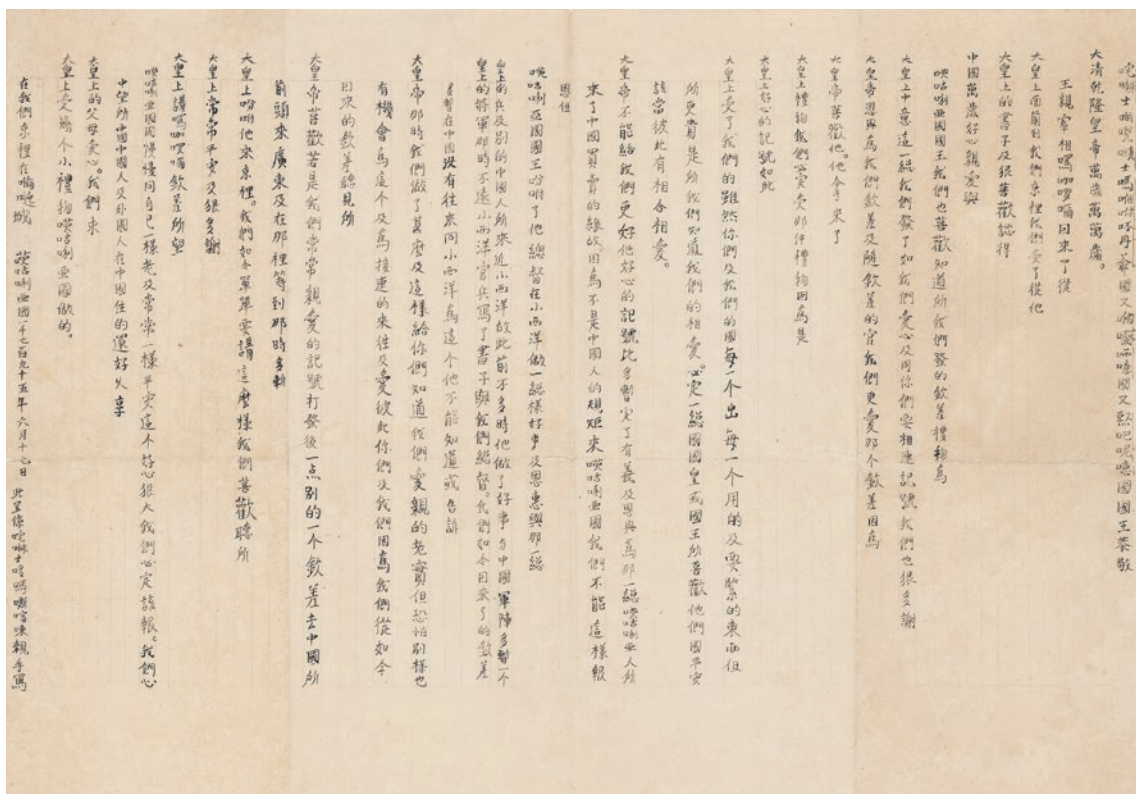 大清乾隆皇帝萬歲萬萬歲。
王親宰相嗎咖嘮嘛回來了從
大皇上面前到我們京裡我們受了從他
大皇上的書子及狠喜歡認得
中國萬歲好心親愛與
㗲咭唎亞國國王我們也喜歡知道所我們發的欽差禮物為
大皇上中意這一總我們發了如我們愛心及用你們要相連記號我們也狠多謝
大皇帝恩典為我們欽差及隨欽差的官我們更愛那个欽差因為
大皇帝喜歡他。他拿來了
大皇上禮物我們實受那件禮物因為是
大皇上好心的記號如此
大皇上受了我們的雖然你們及我們的國每一个出每一个用的及要緊的東西但
所更貴是所我們知道我們的相愛。必定一總國國皇或國王所喜歡他們國平安
該當彼此有相合相愛。
大皇帝不能給我們更好他好心的記號比多暫定了有義及恩典為那一總㗲咭唎亞人所
來了中國買賣的緣故。因為不是中國人的規矩來㗲咭唎亞國我們不能這樣報
恩但
㗲咭唎亞國國王吩咐了他總督在小西洋做一總樣好事及恩惠與那一總
皇上的兵及別的中國人所來近小西洋故此前不多時他做了好事與中國軍陣多暫一个
皇上的將軍那時不遠小西洋官兵寫了書子與我們總督。我們如今回來了的欽差
多暫在中國沒有往來同小西洋為這个他不能知道或告訴
大皇帝那時我們做了甚麼及這樣給你們知道我們愛親的老實但恐怕別樣也
有機會為這个及為接連的來往及愛彼此你們及我們因為我們從如今
回來的欽差聽見所
大皇帝喜歡若是我們常常親愛的記號打發後一点別的一个欽差去中國所
前頭來廣東及在那裡等到那時多暫
大皇上吩咐他來京裡。我們如今單單要講這麼樣我們喜歡聽所
大皇上常常平安及狠多謝
大皇上講嗎咖嘮嘛欽差所望
㗲咭唎亞國國慢慢同自己一樣老及常常一樣平安這个好心狠大我們必定該報。我們心
中望所中國中國人及外國人在中國住的還好久享
大皇上的父母愛心。我們求
大皇上受幾个小禮物㗲咭唎亞國做的。
在我們京裡在囒㖡城 㗲咭唎亞國一千七百九十五年六月二十日